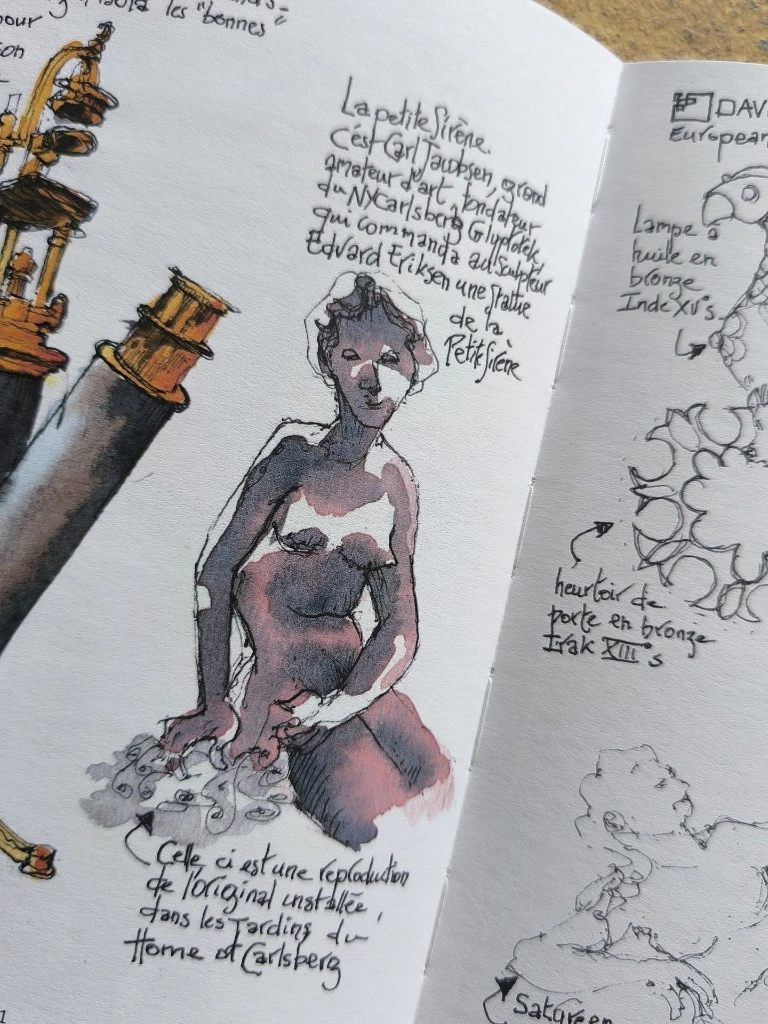 les "bonnes
pour
La petite Sirène.
c'est Carl Jacobsen, grand
amateur d'art, fondateur
du NYCarlsberg Glyptotek,
qui commanda au sculpteur
Edvard Eriksen une statue
de la
Petite Sirène
Celle ci est une reproduction
de l'original installée,
dans les Jardins du
Home of Carlsberg
DAV
European
Lampe à
huile en
bronze
Inde XV°s.
heurtoir de
porte en bronze
Irak XIII°s
Satyre en